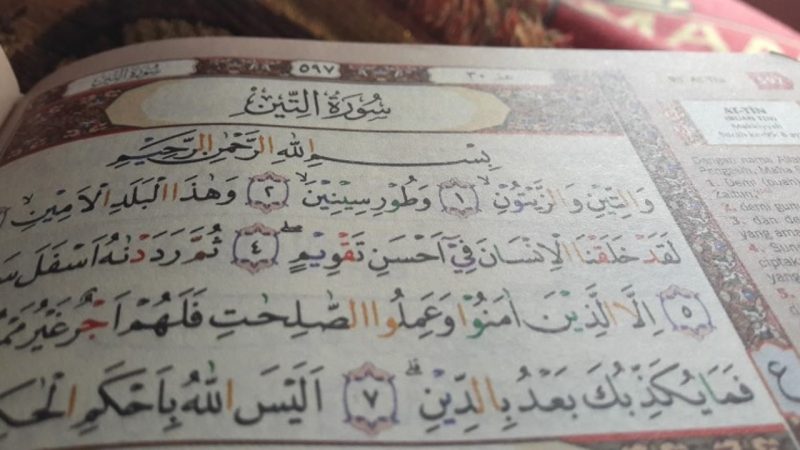 سُورَةُ التِّيْنِ ٥٩٧ جز ٣٠
سُورَةُ التِّيْنِ
بِسْمِ اللّٰهِ الرَّحْمٰنِ الرَّحِيْمِ
وَالتِّيْنِ وَالزَّيْتُوْنِۙ ١ وَطُوْرِ سِيْنِيْنَۙ ٢ وَهٰذَا الْبَلَدِ الْاَمِيْنِۙ
لَقَدْ خَلَقْنَا الْاِنْسَانَ فِيْٓ اَحْسَنِ تَقْوِيْمٍۖ ٤ ثُمَّ رَدَدْنٰهُ اَسْفَلَ
٥ اِلَّا الَّذِيْنَ اٰمَنُوْا وَعَمِلُوا الصّٰلِحٰتِ فَلَهُمْ اَجْرٌ غَيْرُ
فَمَا يُكَذِّبُكَ بَعْدُ بِالدِّيْنِۗ ٧ اَلَيْسَ اللّٰهُ بِاَحْكَمِ
597
AT-TIN
(BUAH TIN)
Makkiyyah
Dengan nama Allah
Pengasih, Maha
1. Demi (buah)
2. demi
3. dan
yang
4.
yang
5.